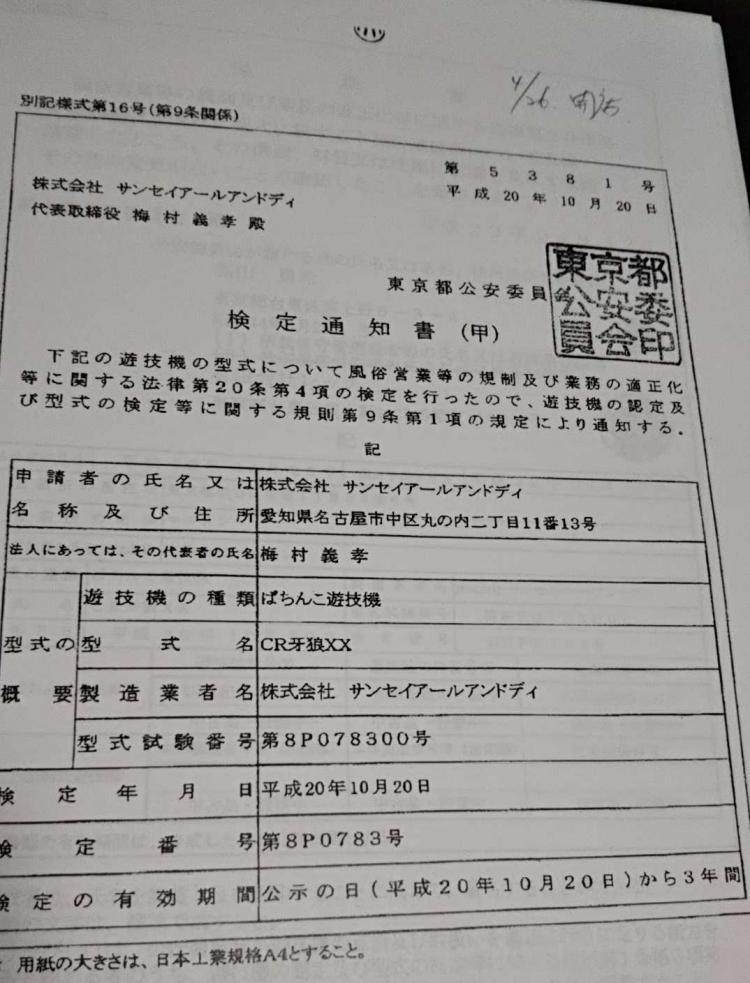 4/26.
別記様式第16号(第9条関係)
第5381号
平成20年10月20日
株式会社 サンセイアールアンドディ
代表取締役 梅村義孝殿
東京都公安委員会
東京都公安委員会印
検定通知書(甲)
下記の遊技機の型式について風俗営業等の規制及び業務の適正化
等に関する法律第20条第4項の検定を行ったので、遊技機の認定及
び型式の検定等に関する規則第9条第1項の規定により通知する.
記
申請者の氏名又は 株式会社 サンセイアールアンドディ
名称及び住所 愛知県名古屋市中区丸の内二丁目11番13号
法人にあっては、その代表者の氏名 梅村義孝
型式の概要
遊技機の種類 ぱちんこ遊技機
型式名 CR牙狼XX
製造業者名 株式会社 サンセイアールアンドディ
型式試験番号 第8P078300号
検定年月日 平成20年10月20日
検定番号 第8P0783号
検定の有効期間 公示の日(平成20年10月20日)から3年間
用紙の大きさは、日本工業規格A4とすること。